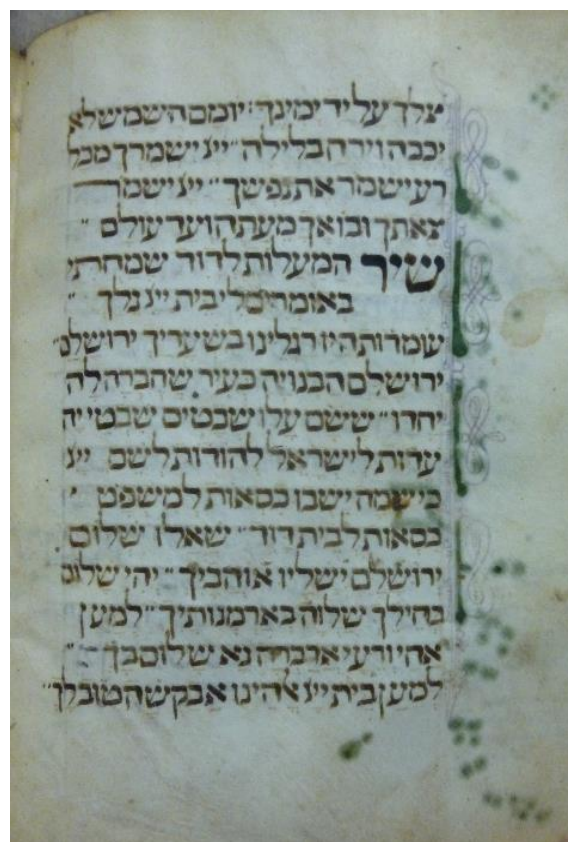 צלך על יד ימינך: יומם השמש לא
יככה וירח בלילה ״ ייי ישמרך מכל
רע ישמר את נפשך ״ ייי ישמר
צאתך ובואך מעתה ועד עולם ״
שיר המעלות לדוד שמחתי
באומרים לי בית ייי נלך ״
עומדות היו רגלינו בשעריך ירושלם״
ירושלם הבנויה כעיר שחברה לה
יחדו״ ששם עלו שבטים שבטי יה
עדות לישראל להודות לשם ייי
כי שמה ישבו כסאות למשפט
כסאות לבית דוד״ שאלו שלום
ירושלם ישליו אוהביך ״ יהי שלום
בחילך שלוה בארמנותיך ״ למען
אחי ורעי אדברה נא שלום בך ״
למען בית ייי אהינו אבקשה טוב לך״